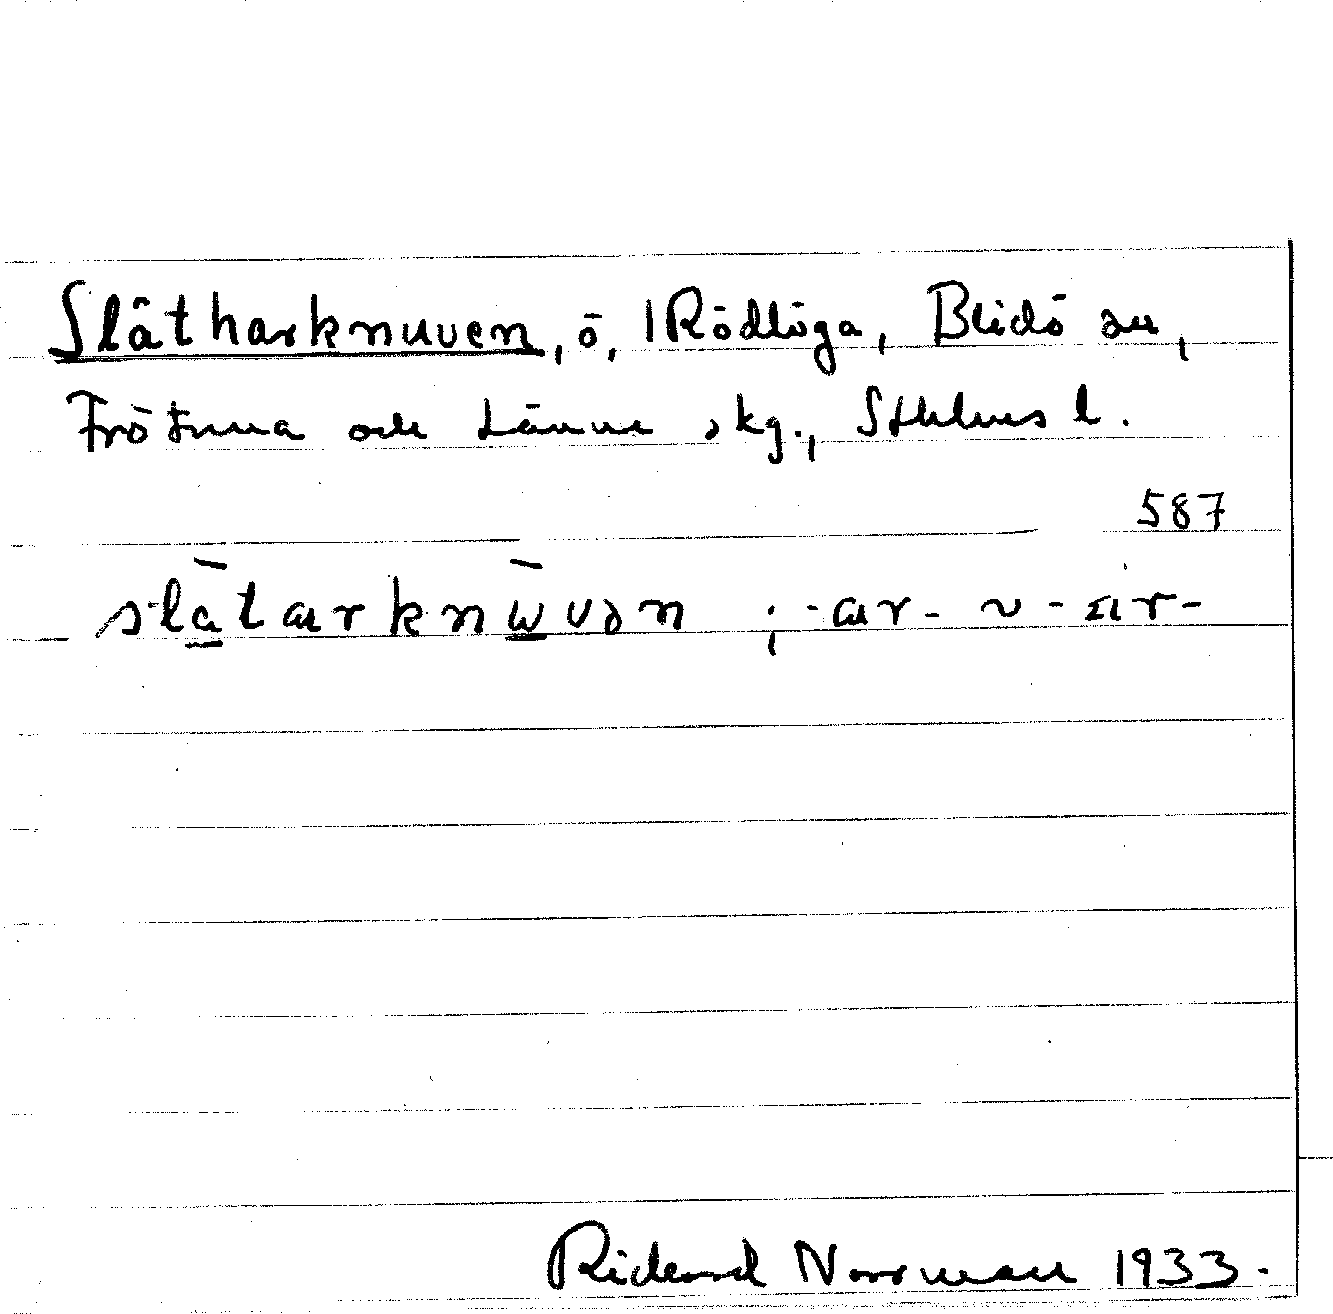 Slåtharknuven, ö, Rödlöga, Blidö sn,
Frötuna och Länna skg., Sthlms l.
587
slàtarknùvən ; -ar- v -är-
Rickard Norrman 1933.